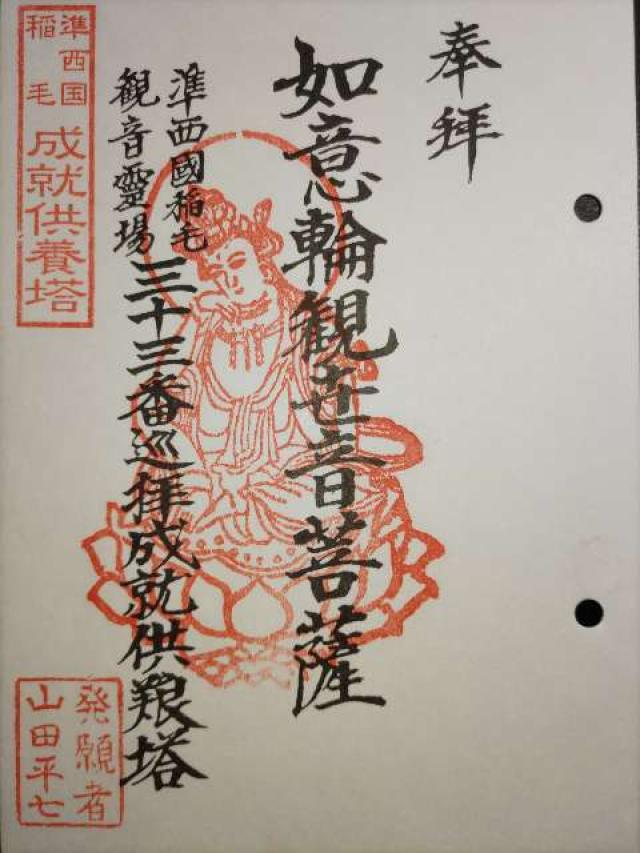 奉拝
如意輪観世音菩薩
準西國稲毛
観音靈場
三十三番巡拝成就供養塔
準西国
稲毛
成就供養塔
発願者
山田平七